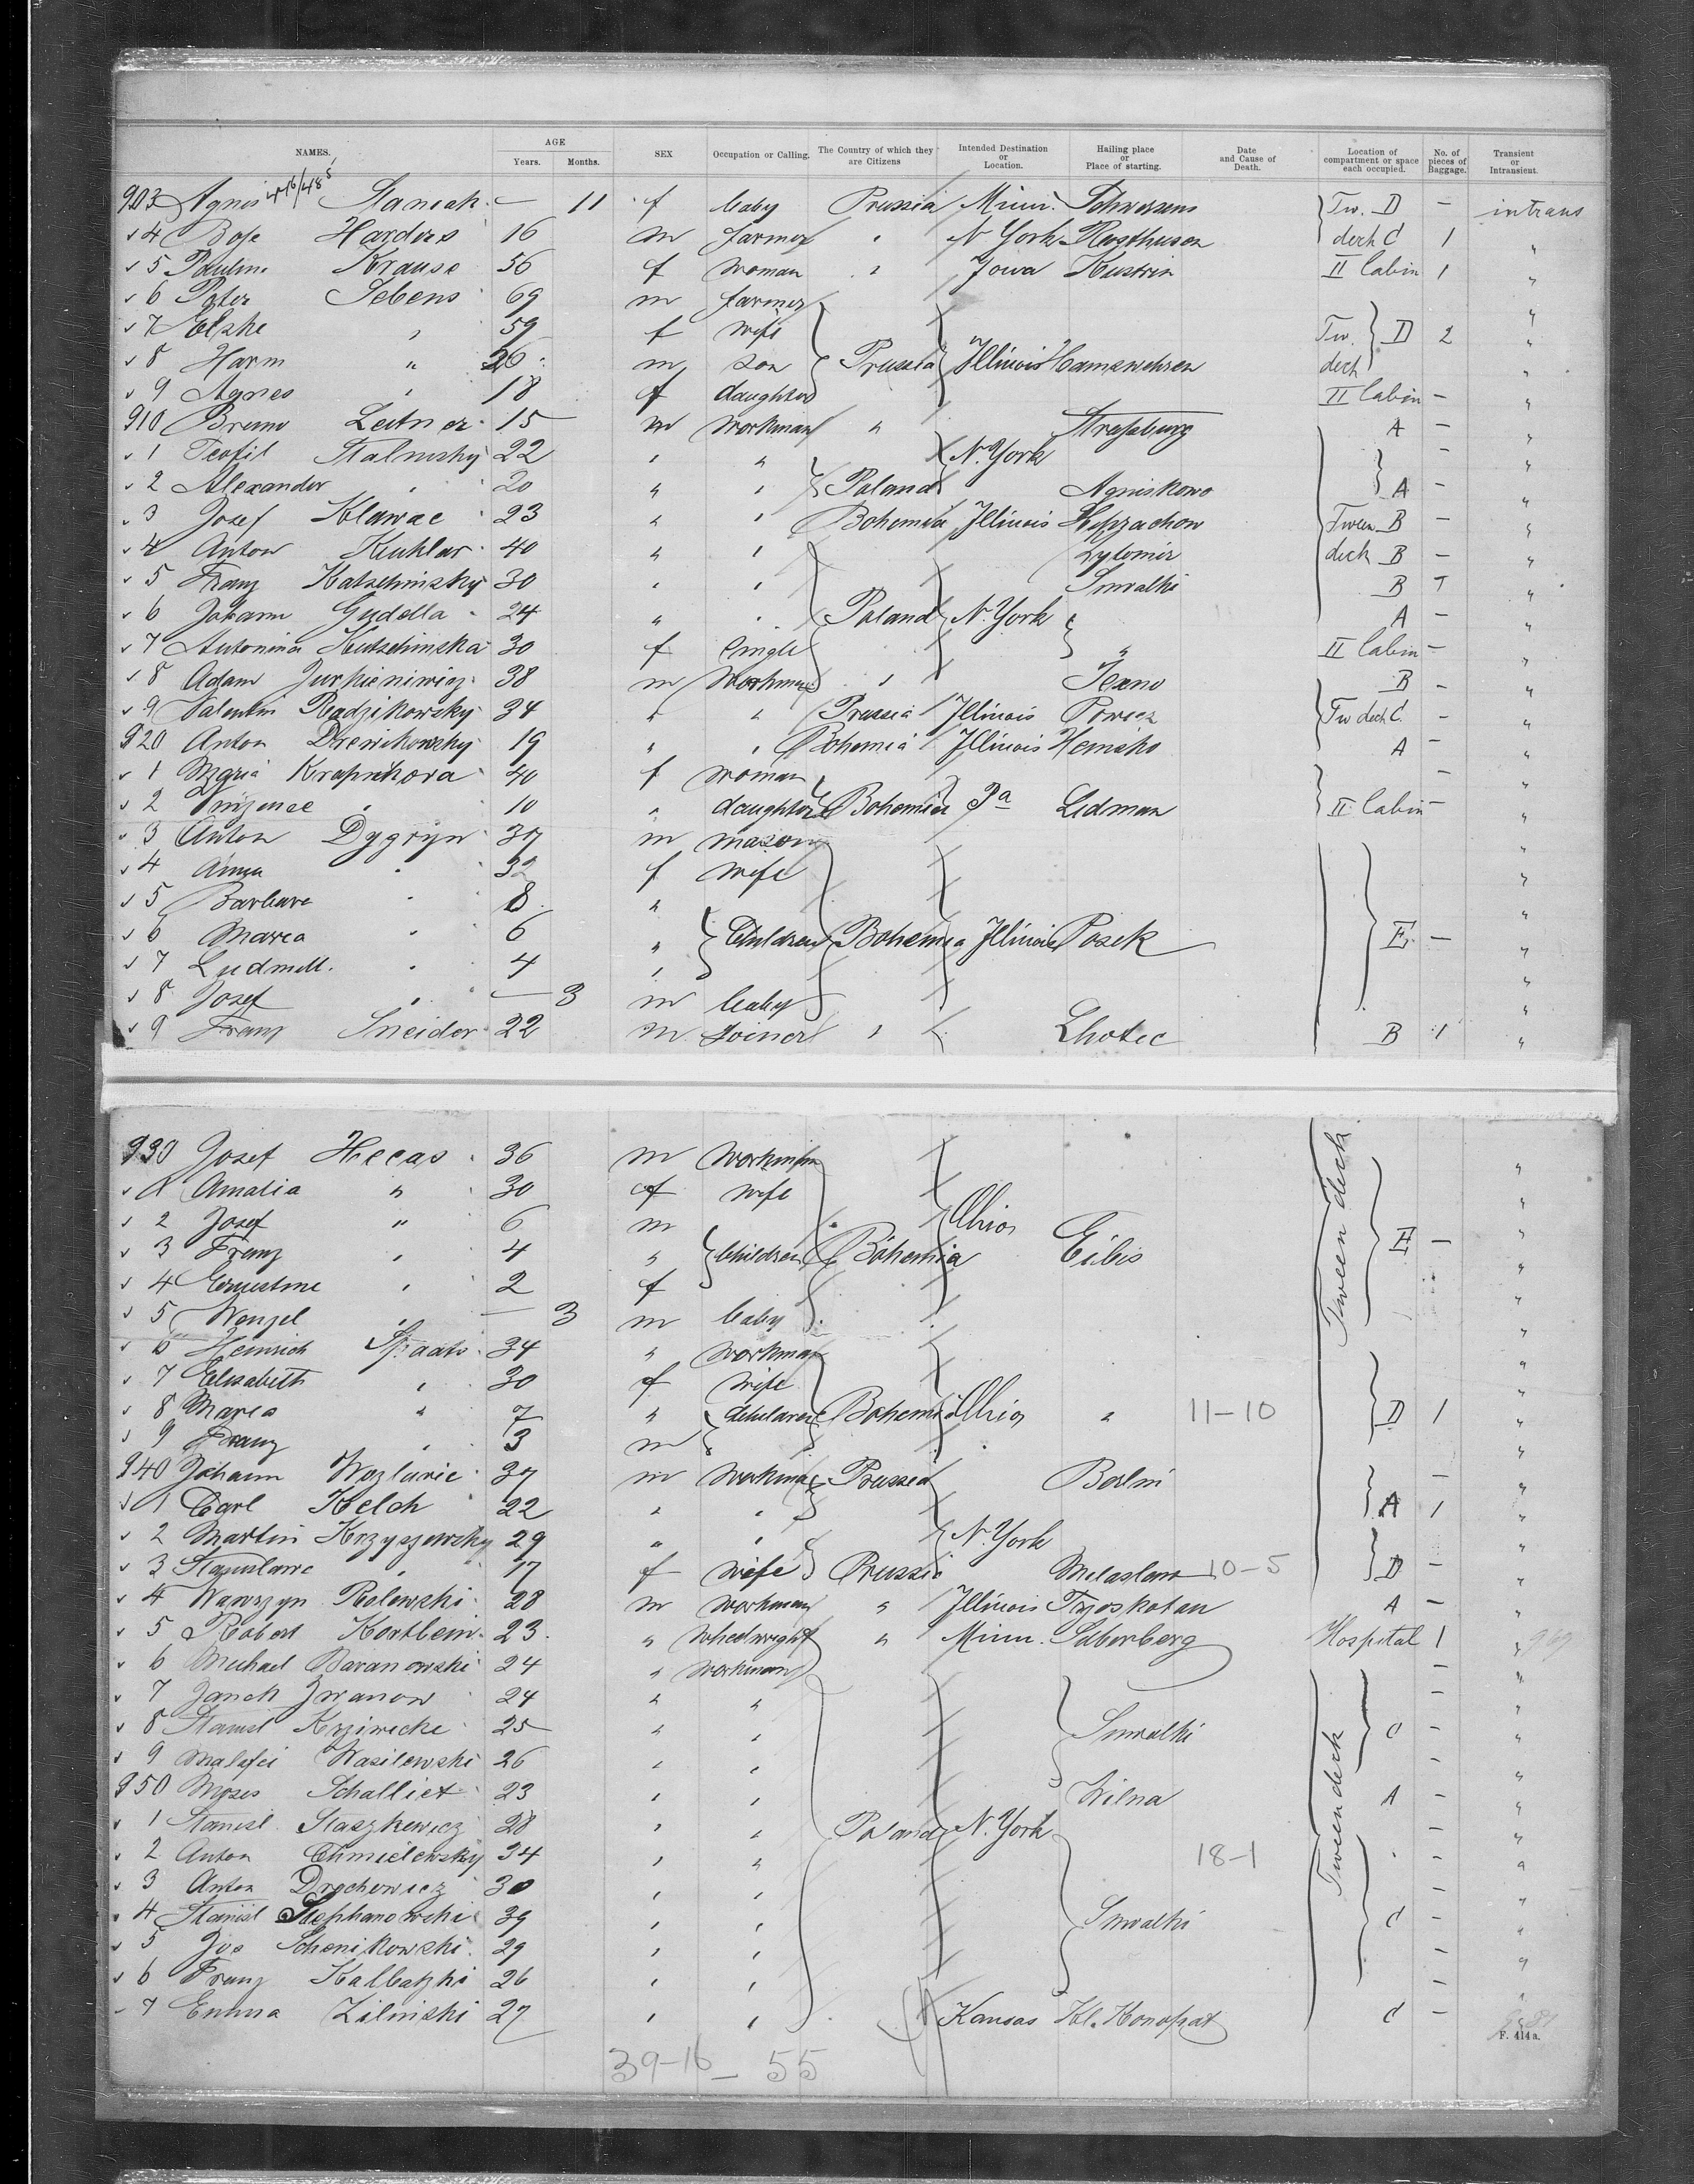 NAMES. AGE Years. Months. SEX Occupation or Calling. The Country of which they are Citizens Intended Destination or Location. Hailing place or Place of starting. Date and Cause of Death. Location of compartment or space each occupied. No. of pieces of Baggage. Transient or Intransient.
903 Agnes Staniak — 11 f baby Prussia Minn. Schwersens Tw. D — intrans
4 Harders 16 m farmer " N York deck C 1 "
5 Pauline Krause 56 f woman " Iowa Kustrin II Cabin 1 "
6 Peter Sebens 69 m farmer "
7 Elske " 59 f wife Tw. D 2 "
8 Harm " 26 m son Prussia Illinois Hamswehren deck "
9 Agnes " 18 f daughter II Cabin — "
910 Bruno Leitner 15 m workman " Strassburg A — "
1 Teofil 22 " " N. York — "
2 Alexander " 20 " " Poland Agniskowo A — "
3 Josef Klawac 23 " " Bohemia Illinois Tween B — "
4 Anton Kuklar 40 " " Lytomir deck B — "
5 Franz Katschinsky 30 " " Suwalki B "
6 Johann Gudella 24 " " Poland N. York A — "
7 Antonina Kutschinska 30 f single " II Cabin — "
8 Adam 38 m workman " B — "
9 Valentin Radzikowsky 34 " " Prussia Illinois Powicz Tw deck C. — "
920 Anton Drewikowsky 19 " " Bohemia Illinois A — "
1 Maria Krapnikova 40 f woman — "
2 " 10 " daughter Bohemia Pa Ledman II Cabin — "
3 Anton Dygryn 37 m mason "
4 Anna " 32 f wife "
5 Barbara " 8 " "
6 Maria " 6 " Children Bohemia Illinois Posek E. — "
7 Ludmill. " 4 " "
8 Josef " — 3 m baby "
9 Franz Sneider 22 m Joiner " Lhotec B 1 "
930 Josef Hecas 36 m workman "
1 Amalia " 30 f wife "
2 Josef " 6 m Ohio "
3 Franz " 4 " Children Bohemia Eibis Tween deck E — "
4 Ernestine " 2 f "
5 Wenzel " — 3 m baby "
6 Heinrich 34 " workman "
7 Elisabeth " 30 f wife "
8 Maria " 7 " children Bohemia Ohio " 11-10 D 1 "
9 Franz " 3 m "
940 Johann Wozlavic 37 m workman Prussia Berlin — "
1 Carl Kelch 22 " " A 1 "
2 Martin Krzyszewsky 29 " " N. York "
3 Stanislawa " 17 f wife Prussia 10-5 D — "
4 Wawrzyn Rolewski 28 m workman " Illinois A — "
5 Robert Kortbein 23 " Wheelwright " Minn. Hospital 1 "
6 Michael Baranowski 24 " workman — "
7 Janek Iwanow 24 " " — "
8 Stanisl Krziwicke 25 " " Suwalki C — "
9 Wasilewski 26 " " — "
950 Moses Schalliet 23 " " Wilna A — "
1 Stanisl Staszkewicz 28 " " Poland N. York Tween deck — "
2 Anton Chmielewsky 34 " " 18-1 — "
3 Anton Drochowicz 30 " " — "
4 Stanisl Stephanowski 39 " " Suwalki C — "
5 Jos Schenikowski 29 " " — "
6 Franz 26 " " — "
7 Emma Zilinski 27 " " Kansas Kl. Konopat C —
F. 414 a.
39-16 — 55